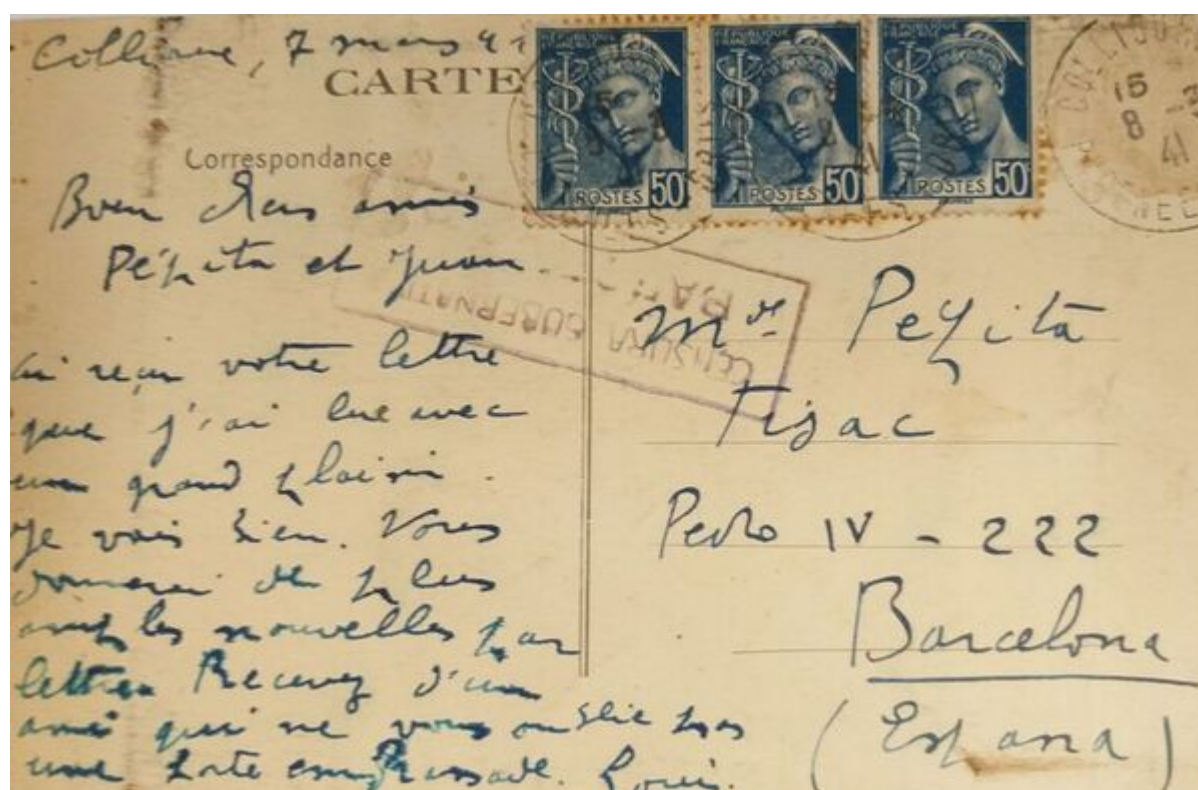 Collioure, 7 mars 41
CARTE
Correspondance
Bien chers amis
Pépita et Juan.
ai reçu votre lettre
que j'ai lue avec
un grand plaisir.
Je vais bien. Vous
donnerai de plus
amples nouvelles par
lettre. Recevez d'un
ami qui ne vous oublie pas
une forte embrassade. Louis.
RÉPUBLIQUE FRANÇAISE
POSTES 50
RÉPUBLIQUE FRANÇAISE
POSTES 50
RÉPUBLIQUE FRANÇAISE
POSTES 50
COLLIOURE
15
8
41
CENSURA GUBERNATI
Mde Pepita
Tisac
Pedro IV - 222
Barcelona
(España)